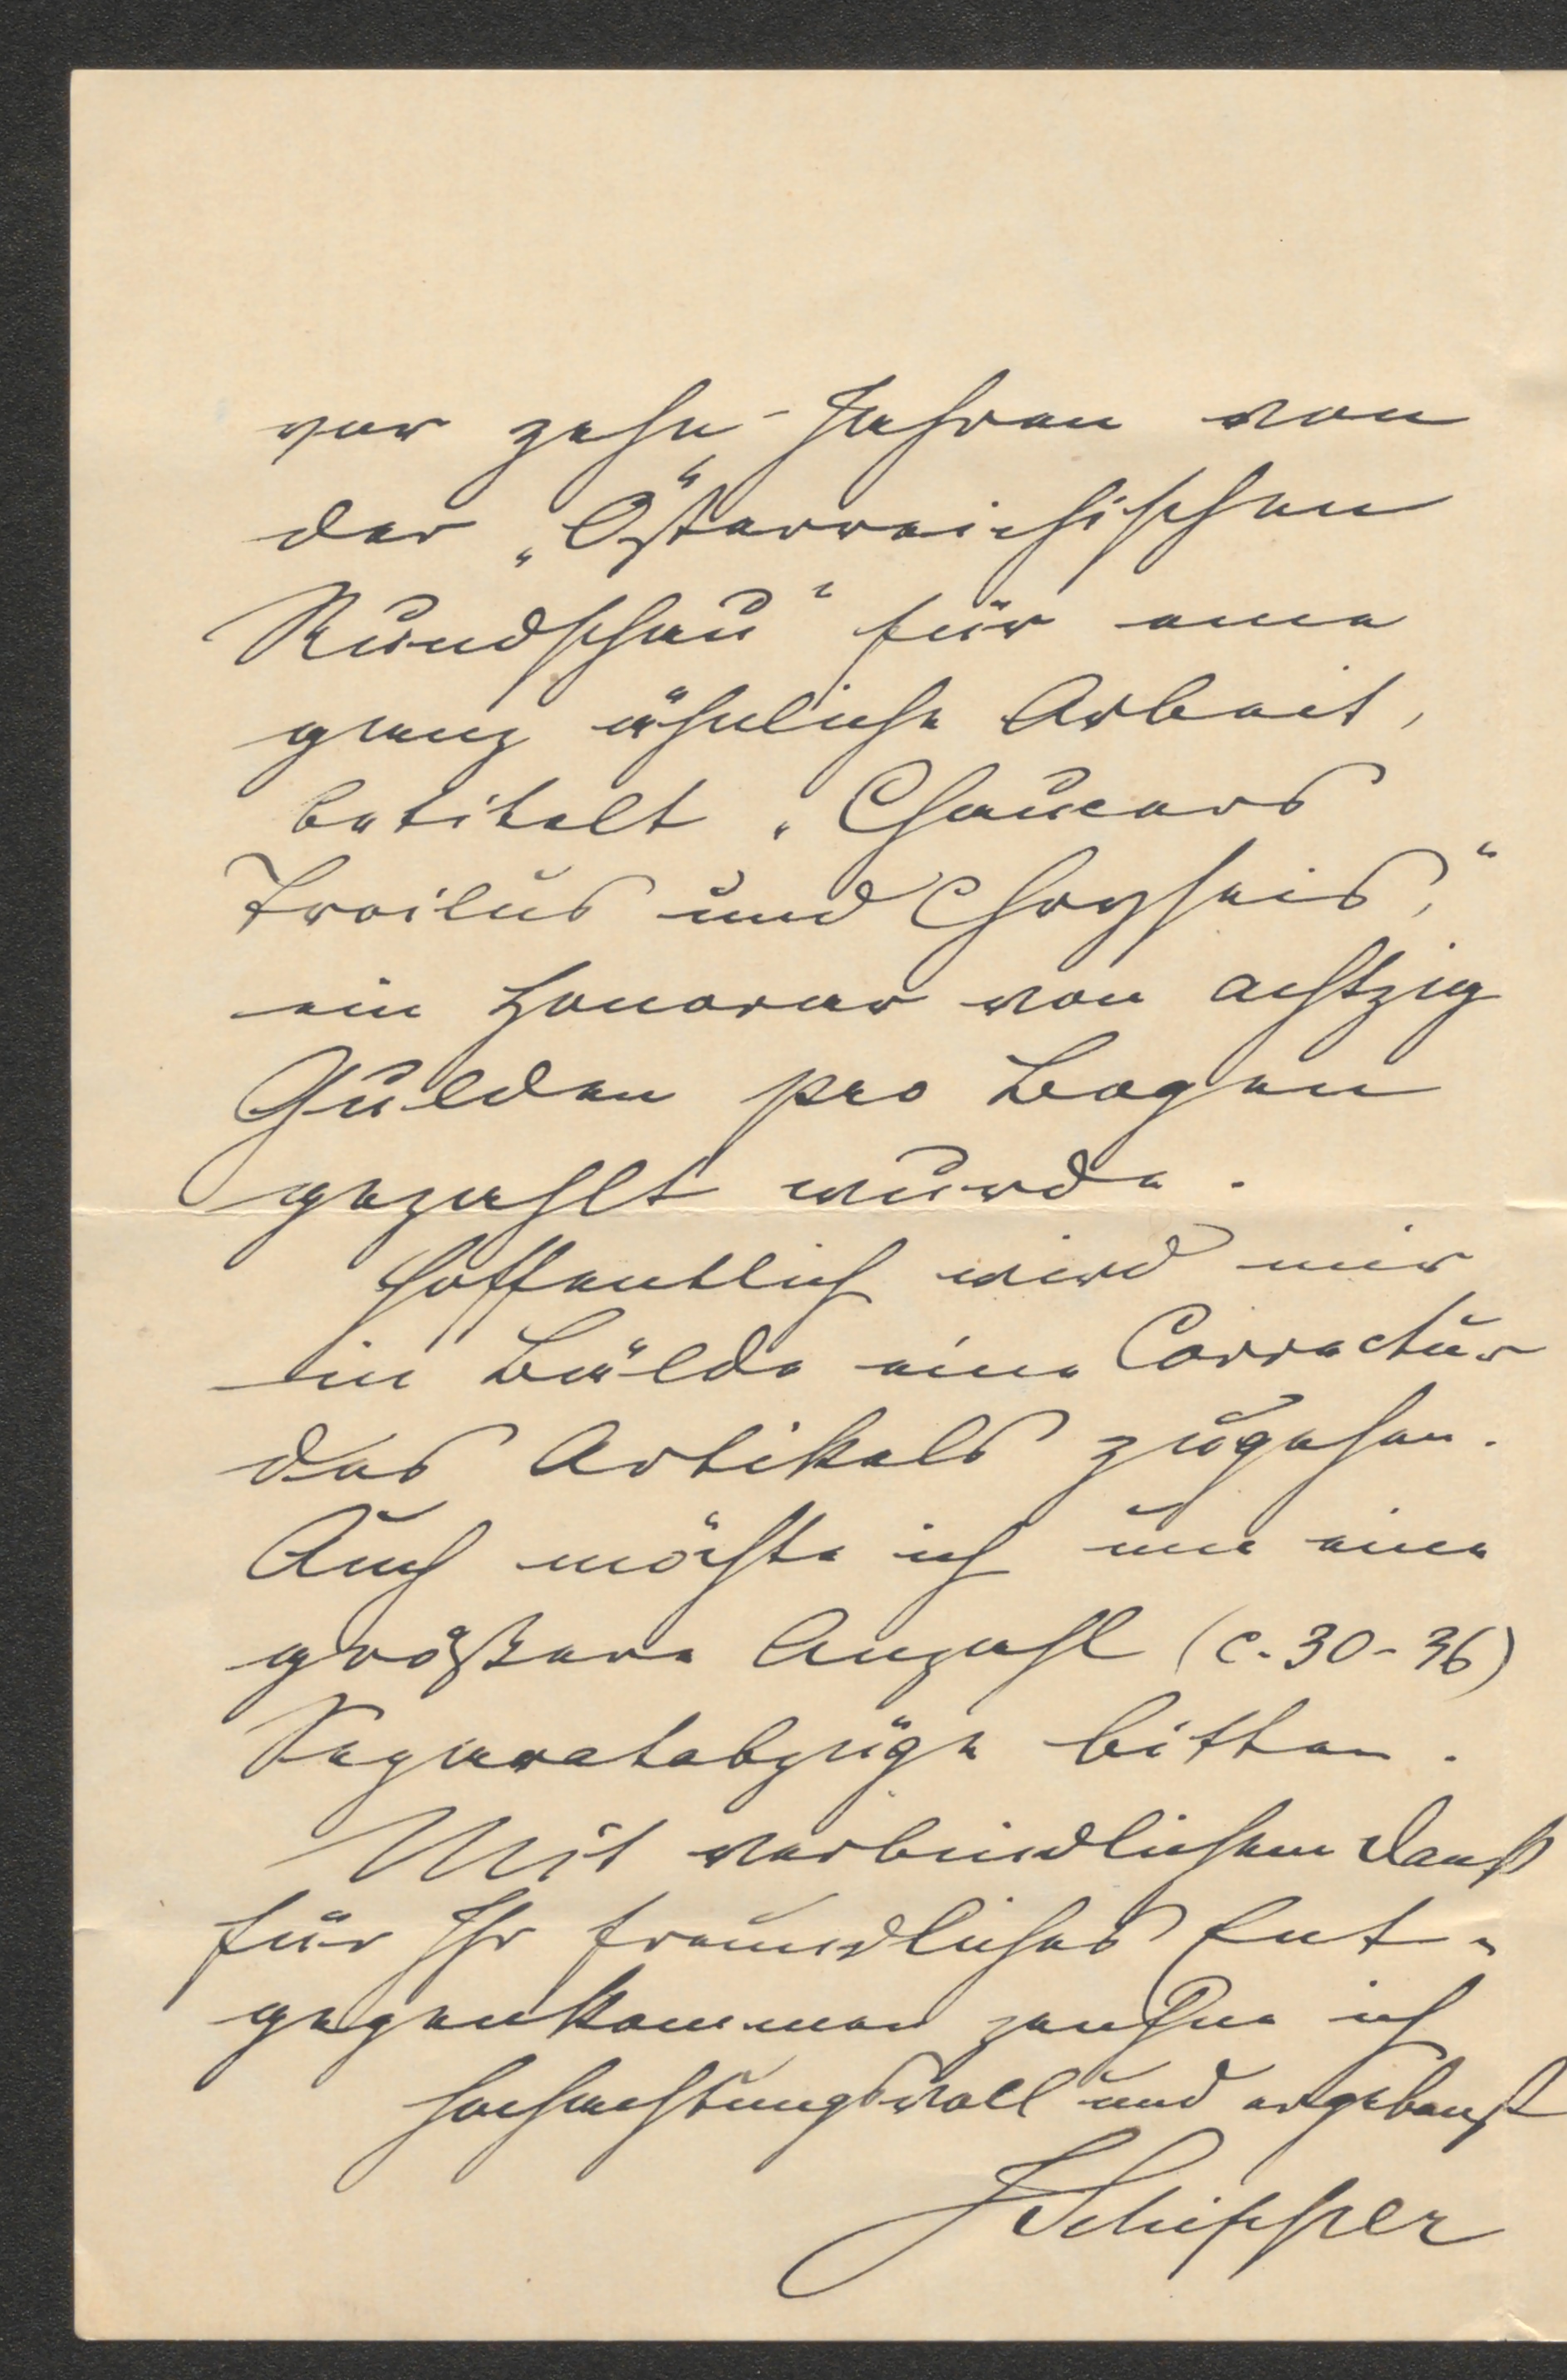 vor zehn Jahren von
der „Österreichischen
Rundschau“ für eine
ganz ähnliche Arbeit,
betitelt „Chaucers
Troilus und Chryseis,“
ein Honorar von achtzig
Gulden pro Bogen
gezahlt wurde.
Hoffentlich wird mir
in Bälde eine Correctur
des Artikels zugehen.
Auch möchte ich um eine
größere Anzahl (c. 30-36)
Separatabzüge bitten.
Mit verbindlichem Dank
für Ihr freundliches Ent-
gegenkommen zeichne ich
hochachtungsvoll und ergebenst
J Schipper